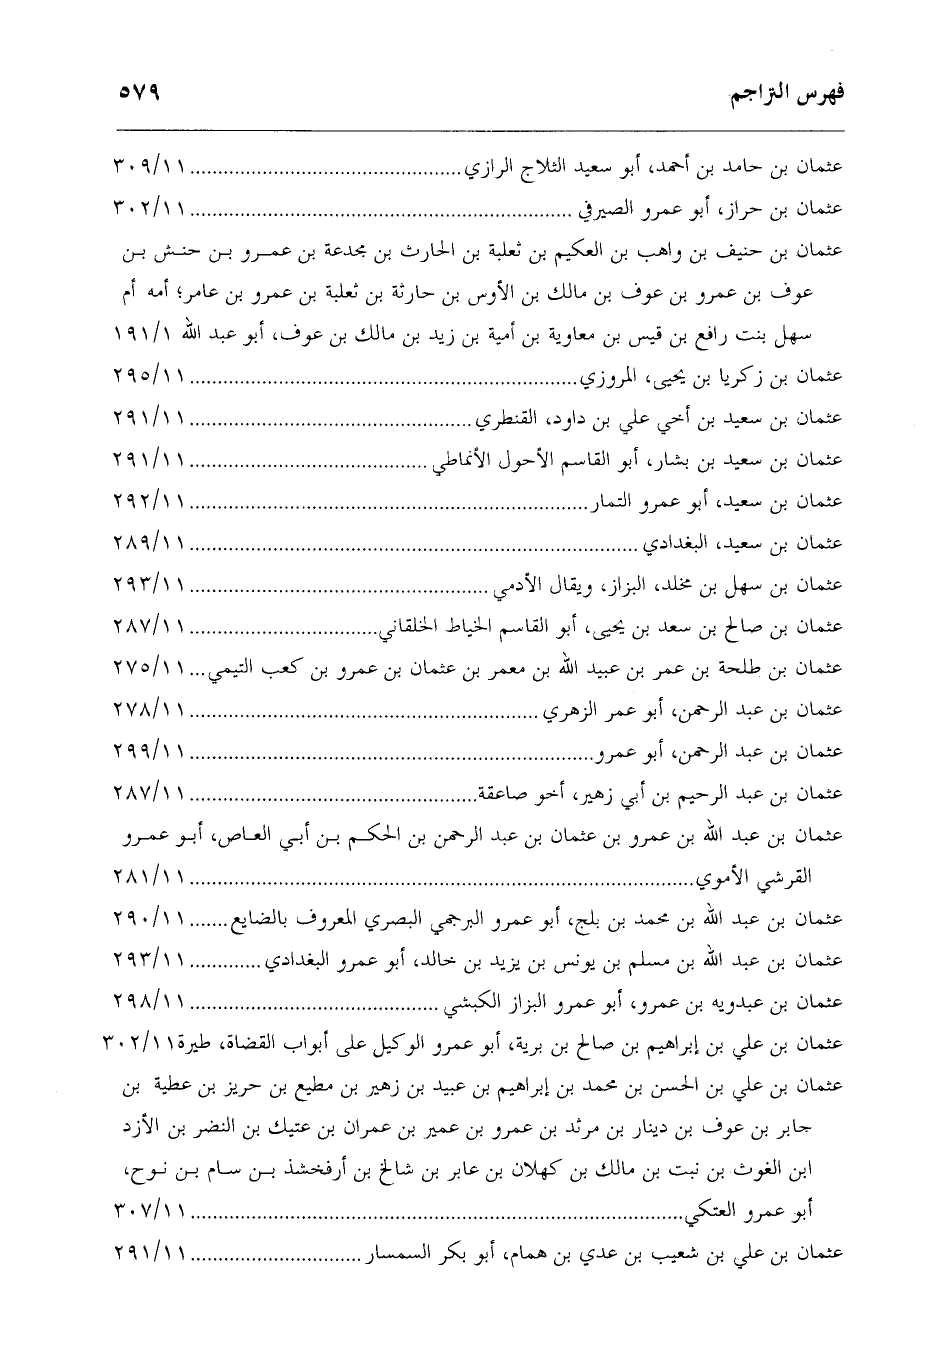 فهرس التراجم ٥٧٩
عثمان بن حامد بن أحمد، أبو سعيد الثلاج الرازي ........ ٣٠٩/١١
عثمان بن حراز، أبو عمرو الصيرفي ........ ٣٠٢/١١
عثمان بن حنيف بن واهب بن العكيم بن ثعلبة بن الحارث بن مجدعة بن عمرو بن حنش بن
عوف بن عمرو بن عوف بن مالك بن الأوس بن حارثة بن ثعلبة بن عمرو بن عامر؛ أمه أم
سهل بنت رافع بن قيس بن معاوية بن أمية بن زيد بن مالك بن عوف، أبو عبد الله ١٩١/١
عثمان بن زكريا بن يحيى، المروزي ........ ٢٩٥/١١
عثمان بن سعيد بن أخي علي بن داود، القنطري ........ ٢٩١/١١
عثمان بن سعيد بن بشار، أبو القاسم الأحول الأنماطي ........ ٢٩١/١١
عثمان بن سعيد، أبو عمرو التمار ........ ٢٩٢/١١
عثمان بن سعيد، البغدادي ........ ٢٨٩/١١
عثمان بن سهل بن مخلد، البزاز، ويقال الأدمي ........ ٢٩٣/١١
عثمان بن صالح بن سعد بن يحيى، أبو القاسم الخياط الخلقاني ........ ٢٨٧/١١
عثمان بن طلحة بن عمر بن عبيد الله بن معمر بن عثمان بن عمرو بن كعب التيمي ... ٢٧٥/١١
عثمان بن عبد الرحمن، أبو عمر الزهري ........ ٢٧٨/١١
عثمان بن عبد الرحمن، أبو عمرو ........ ٢٩٩/١١
عثمان بن عبد الرحيم بن أبي زهير، أخو صاعقة ........ ٢٨٧/١١
عثمان بن عبد الله بن عمرو بن عثمان بن عبد الرحمن بن الحكم بن أبي العاص، أبو عمرو
القرشي الأموي ........ ٢٨١/١١
عثمان بن عبد الله بن محمد بن بلج، أبو عمرو البرجمي البصري المعروف بالضايع ....... ٢٩٠/١١
عثمان بن عبد الله بن مسلم بن يونس بن يزيد بن خالد، أبو عمرو البغدادي ........ ٢٩٣/١١
عثمان بن عبدويه بن عمرو، أبو عمرو البزاز الكبشي ........ ٢٩٨/١١
عثمان بن علي بن إبراهيم بن صالح بن برية، أبو عمرو الوكيل على أبواب القضاة، طيرة ٣٠٢/١١
عثمان بن علي بن الحسن بن محمد بن إبراهيم بن عبيد بن زهير بن مطيع بن حريز بن عطية بن
جابر بن عوف بن دينار بن مرثد بن عمرو بن عمير بن عمران بن عتيك بن النضر بن الأزد
ابن الغوث بن نبت بن مالك بن كهلان بن عابر بن شالخ بن أرفخشذ بن سام بن نوح،
أبو عمرو العتكي ........ ٣٠٧/١١
عثمان بن علي بن شعيب بن عدي بن همام، أبو بكر السمسار ........ ٢٩١/١١